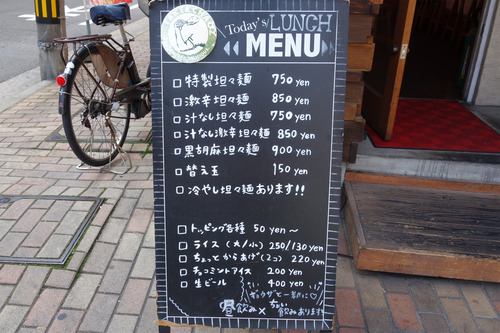 Today's LUNCH
MENU
特製坦々麺 750 yen
激辛坦々麺 850 yen
汁なし坦々麺 750 yen
汁なし激辛坦々麺 850 yen
黒胡麻坦々麺 900 yen
替え玉 150 yen
冷やし坦々麺あります!!
トッピング各種 50 yen〜
ライス(大/小) 250/130 yen
ちょっとからあげ(2コ) 220 yen
チョコミントアイス 200 yen
生ビール 400 yen
ギョウザと一緒に♡
昼飲み×ちょい飲みあります